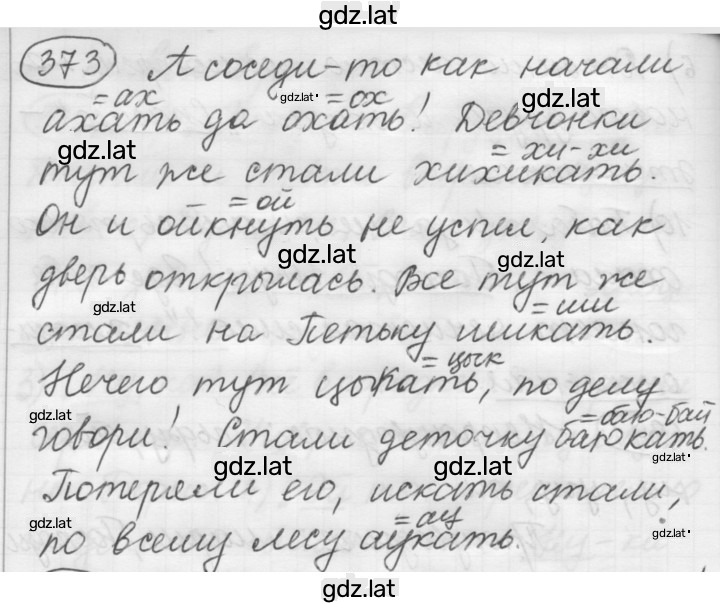 gdz.lat
373 А соседи-то как начали
=ах gdz.lat =ох gdz.lat
ахать да охать! Девчонки
gdz.lat =хи-хи
тут же стали хихикать.
=ой
Он и ойкнуть не успел, как
gdz.lat gdz.lat
дверь открылась. Все тут же
gdz.lat =ши
стали на Петьку шикать.
=цык
Нечего тут цыкать, по делу
gdz.lat =баю-бай
говори! Стали деточку баюкать.
gdz.lat gdz.lat gdz.lat
Потеряли его, искать стали,
gdz.lat =ау gdz.lat
по всему лесу аукать.
gdz.lat